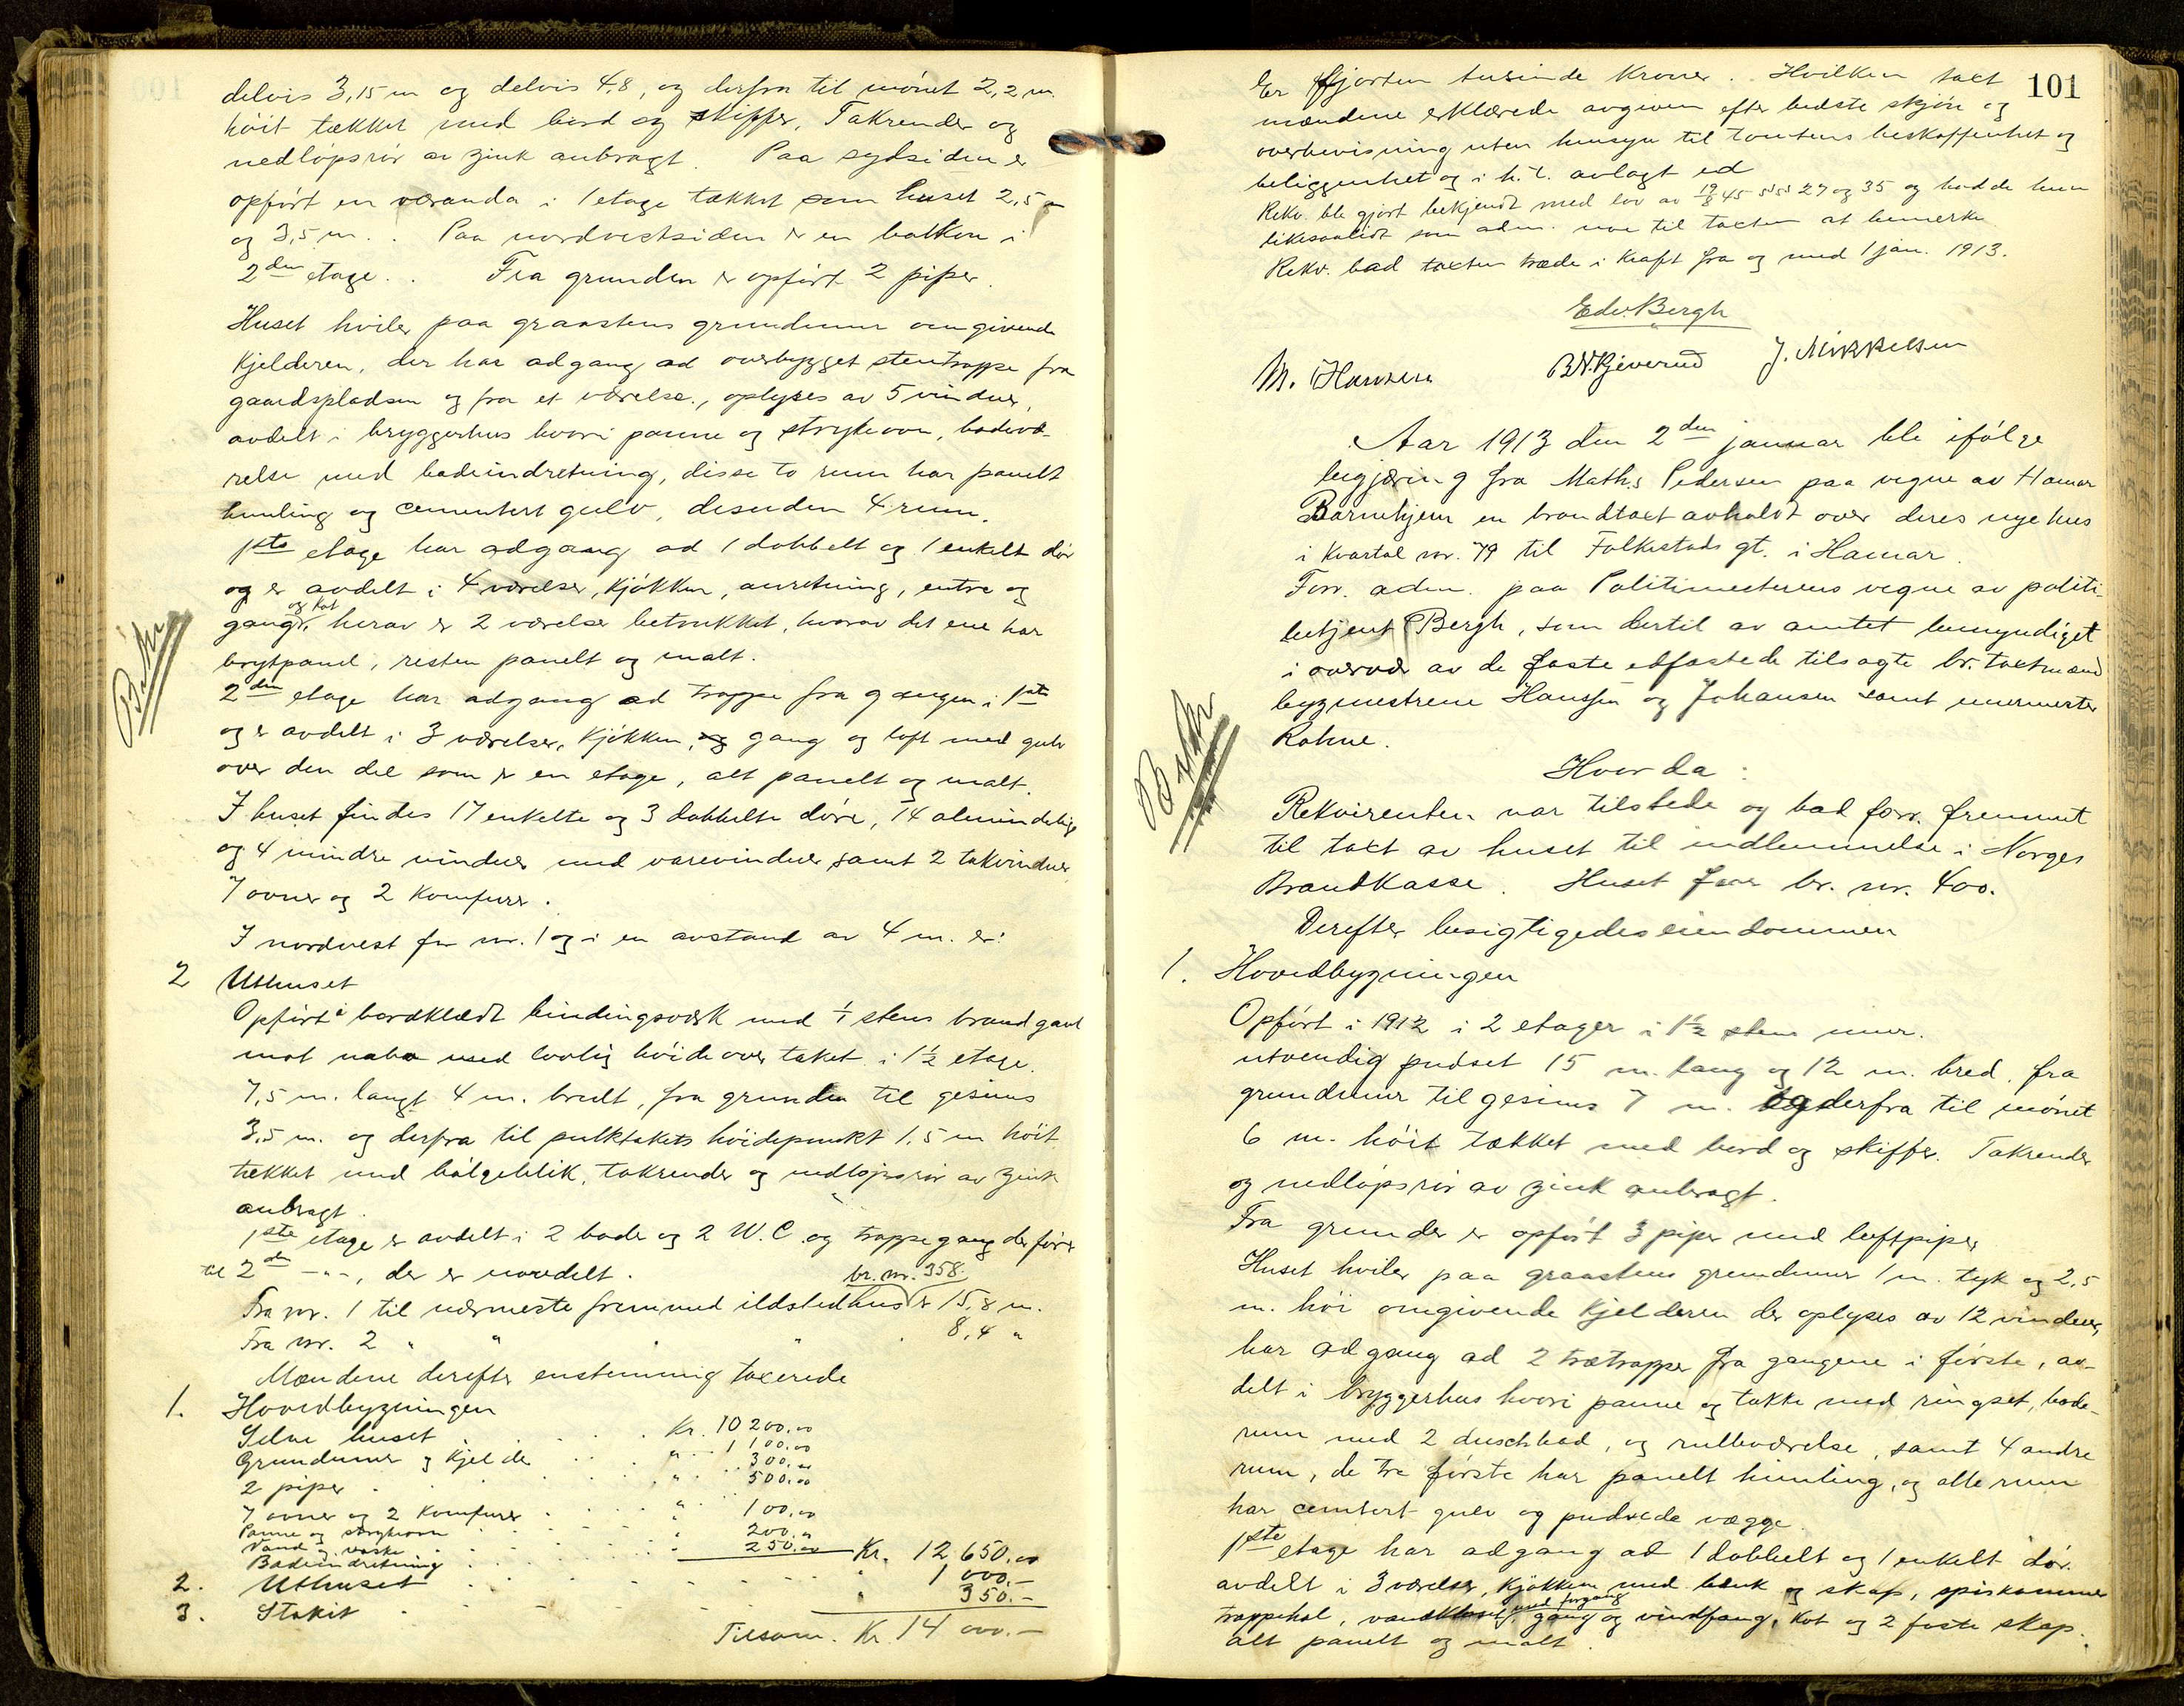 delvis 3,15 m og delvis 4,8, og derfra til mønet 2,2 m.
høit tækket med bord og skiffer. Takrender og
nedløpsrør av zink anbragt. Paa sydsiden er
opført en væranda i 1 etage tækket som huset 2,5 m
og 3,5 m. . Paa nordvestsiden er en balkon i
2den etage. . Fra grunden er opført 2 piper.
Huset hviler paa graastens grundmur omgivende
Kjelderen, der har adgang ad overbygget stentrappe fra
gaardspladsen og fra et værelse, oplyses av 5 vinduer,
avdelt i bryggerhus hvori panne og strykeovn, badevæ-
relse med badeindretning, disse to rum har panelt
himling og cementert gulv, desuden 4 rum.
1ste etage har adgang ad 1 dobbelt og 1 enkelt dør
og er avdelt i 4 værelser, Kjøkken, anretning, entre og
gang og kot, herav er 2 værelser betrukket, hvorav det ene har
brystpanel, resten panelt og malt.
2den etage har adgang ad trappe fra gangen i 1ste
og er avdelt i 3 værelser, Kjøkken, og gang og loft med gulv
over den del som er en etage, alt panelt og malt.
I huset findes 17 enkelte og 3 dobbelte døre, 14 almindelige
og 4 mindre vinduer med varevinduer samt 2 takvinduer
7 ovner og 2 Komfurer.
I nordvest for nr. 1 og i en avstand av 4 m. er:
2 Uthuset
Opført i bordklædt bindingsverk med 1/1 stens brandgavl
mot nabo med lovlig høide over taket i 1½ etage.
7,5 m. langt 4 m. bredt, fra grunden til gesims
3,5 m. og derfra til pulktakets høidepunkt 1,5 m høit
tækket med bølgeblik, takrender og nedløpsrør av zink
anbragt.
1ste etage er avdelt i 2 boder og 2 W.C. og trappegang der fører
til 2den -"-, der er uavdelt.
br. nr. 358.
Fra nr. 1 til nærmeste fremmed ildstedhus er 15,8 m.
Fra nr. 2 " " " " 8,4 "
Mændene derefter enstemmig taxerede
1. Hovedbygningen
Selve huset . . . . Kr. 10 200.00
Grundmur og Kjelder . . . " 1 100.00
2 piper . . . . " 300.00
7 ovner og 2 Komfurer . . . " 500.00
Panne og strykeovn . . . " 100.00
Vand og vaske . . . . " 200.00
Badeindretning . . . . 250.00 Kr. 12 650.00
2. Uthuset . . . . " 1 000.-
3. Stakit . . . . " 350.-
Tilsam. Kr. 14 000.-
101
Er fjorten tusinde Kroner. . Hvilken taxt
mændene erklærede avgiven efter bedste skjøn og
overbevisning uten hensyn til tomtens beskaffenhet og
beliggenhet og i h.t. avlagt ed
Rekv. ble gjort bekjendt med lov av 19/8 45 §§ 27 og 35 og hadde hun
likesaalidt som adm. noe til taxten at bemerke
Rekv. bad taxten træde i Kraft fra og med 1 jan. 1913.
Edv. Bergh
M. Hansen
J. Mikkelsen
Aar 1913 den 2den januar ble ifølge
begjæring fra Maths Pedersen paa vegne av Hamar
Barnehjem en brandtaxt avholdt over deres nye hus
i Kvartal nr. 79 til Folkestads gt. i Hamar.
Forr. adm. paa Politimesterens vegne av politi-
betjent Bergh, som dertil av amtet bemyndiget
i overvær av de faste edfæstede tilsagte br. taxtmænd
bygmestrene Hanssen og Johansen samt murmester
Rohne.
Hvor da:
Rekvirenten var tilstede og bad forr. fremmet
til taxt av huset til indlemmelse i Norges
Brandkasse. Huset faar br. nr. 400.
Derefter besigtigedes eiendommen
1. Hovedbygningen
Opført i 1912 i 2 etager i 1½ stens mur.
utvendig pudset 15 m. lang og 12 m. bred. fra
grundmur til gesims 7 m. og derfra til mønet
6 m. høit tækket med bord og skiffer. Takrender
og nedløpsrør av zink anbragt.
Fra grunden er opført 3 piper med luftpiper
Huset hviler paa graastens grundmur 1 m. tyk og 2,5
m. høi omgivende Kjelderen der oplyses av 12 vinduer,
har adgang ad 2 trætrapper fra gangene i første, av-
delt i bryggerhus hvori panne og takke med ringset, bade-
rum med 2 duschbad, og rulleværelse, samt 4 andre
rum, de tre første har panelt himling, og alle rum
har cementert gulv og pudsede vægge.
1ste etage har adgang ad 1 dobbelt og 1 enkelt dør.
avdelt i 3 værelser, Kjøkken med benk og skap, spiskammer
trappehal, vandkloset med forgang, gang og vindfang, Kot og 2 faste skap.
alt panelt og malt.